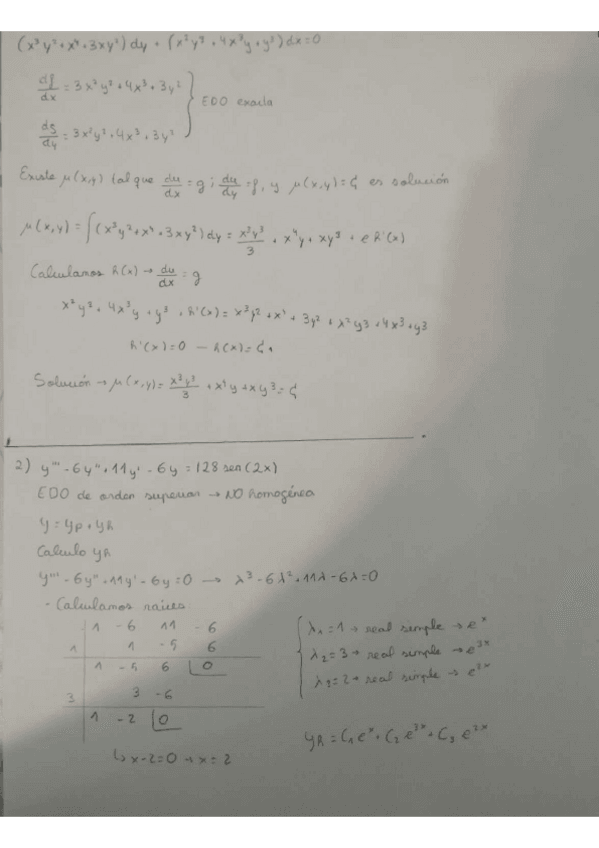 (x³y²+x⁴+3xy²)dy + (x²y³+4x³y+y³)dx=0
df/dx = 3x²y²+4x³+3y²
EDO exacta
dg/dy = 3x²y²+4x³+3y²
Existe μ(x,y) tal que du/dx = g ; du/dy = f, y μ(x,y)=C es solución
μ(x,y) = ∫(x³y²+x⁴+3xy²)dy = x³y³/3 + x⁴y + xy³ + h(x)
Calculamos h(x) → du/dx = g
x²y³ + 4x³y + y³ + h'(x) =
h'(x)=0 → h(x)=C₁
Solución → μ(x,y) = x³y³/3 + x⁴y + xy³ = C
2) y''' - 6y'' + 11y' - 6y = 128 sen(2x)
EDO de orden superior → NO homogénea
y = yp + yh
Calculo yh
y''' - 6y'' + 11y' - 6y = 0 → λ³ - 6λ² + 11λ - 6λ = 0
- Calculamos raíces:
1 -6 11 -6
1 1 -5 6
1 -5 6 0
3 3 -6
1 -2 0
↳ x-2=0 → x=2
λ₁ = 1 → real simple → eˣ
λ₂ = 3 → real simple → e³ˣ
λ₃ = 2 → real simple → e²ˣ
yh = C₁eˣ + C₂e³ˣ + C₃e²ˣ